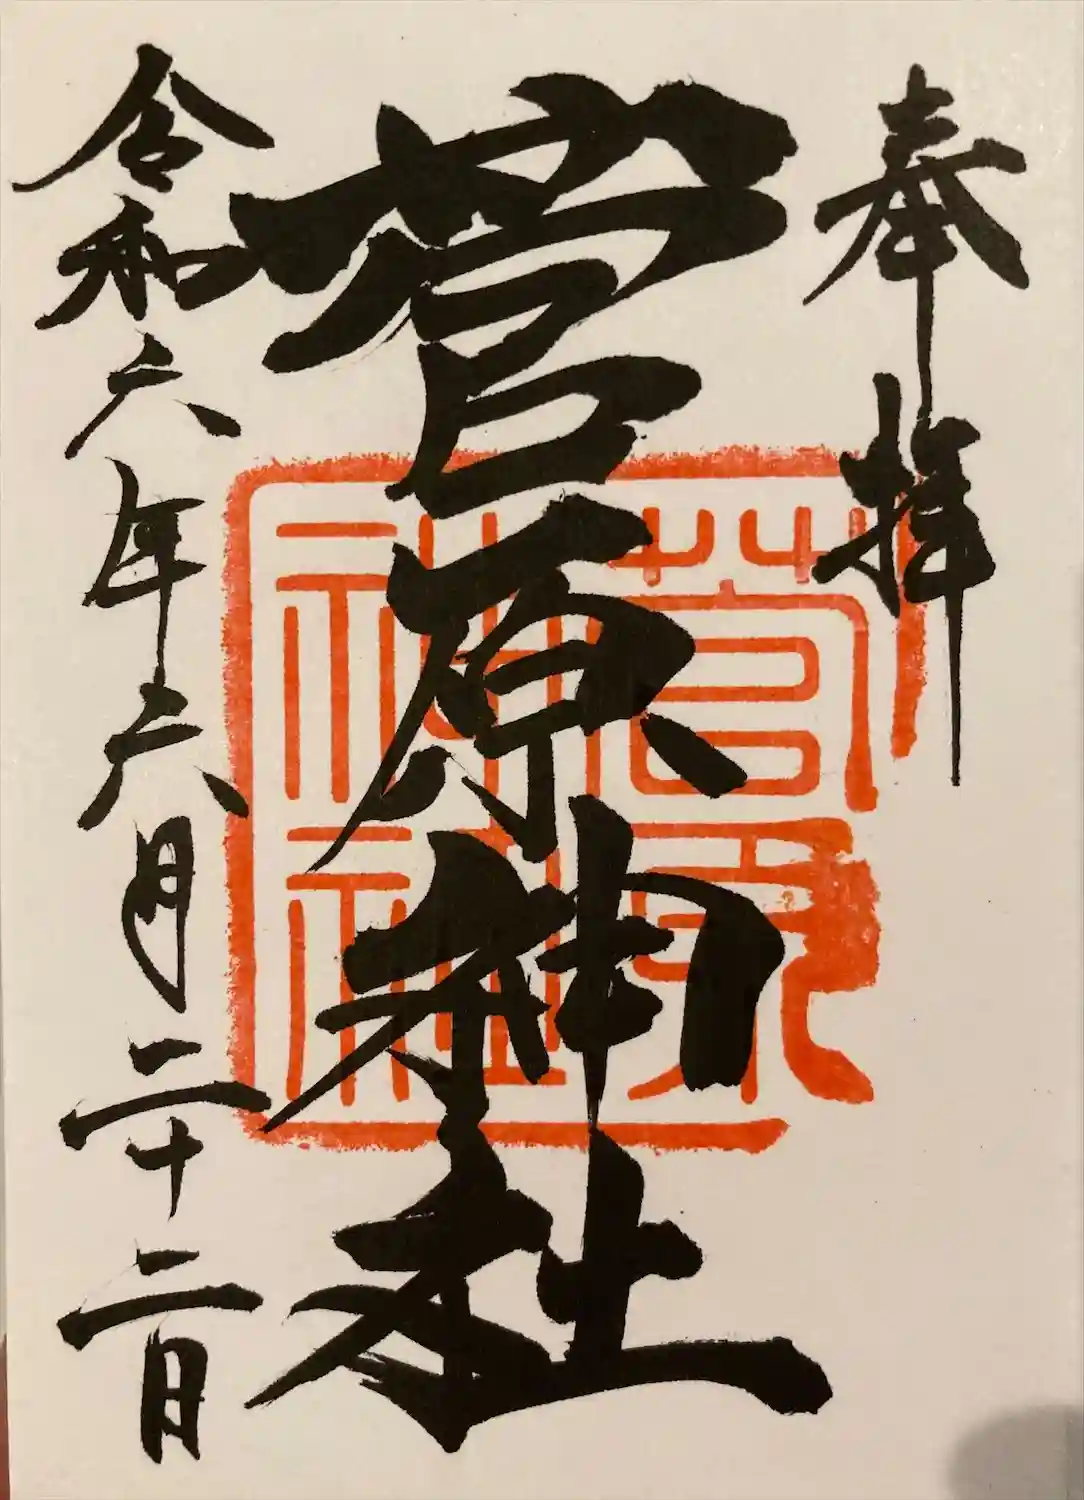 奉拝
菅原神社
菅原神社
令和六年六月二十二日